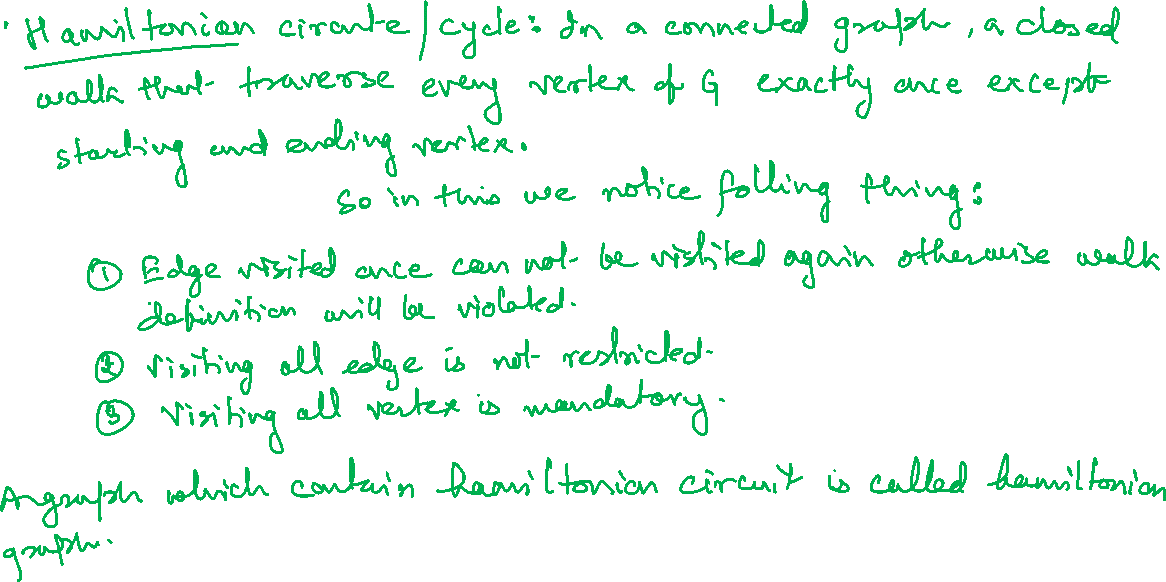 Hamiltonian circute/cycle: In a connected graph, a closed
walk that traverse every vertex of G exactly once except
starting and ending vertex.
So in this we notice folling thing:
① Edge visited once can not be vistited again otherwise walk
definition will be violated.
② Visiting all edge is not restricted.
③ Visiting all vertex is mandatory.
A graph which contain hamiltonian circuit is called hamiltonian
graph.